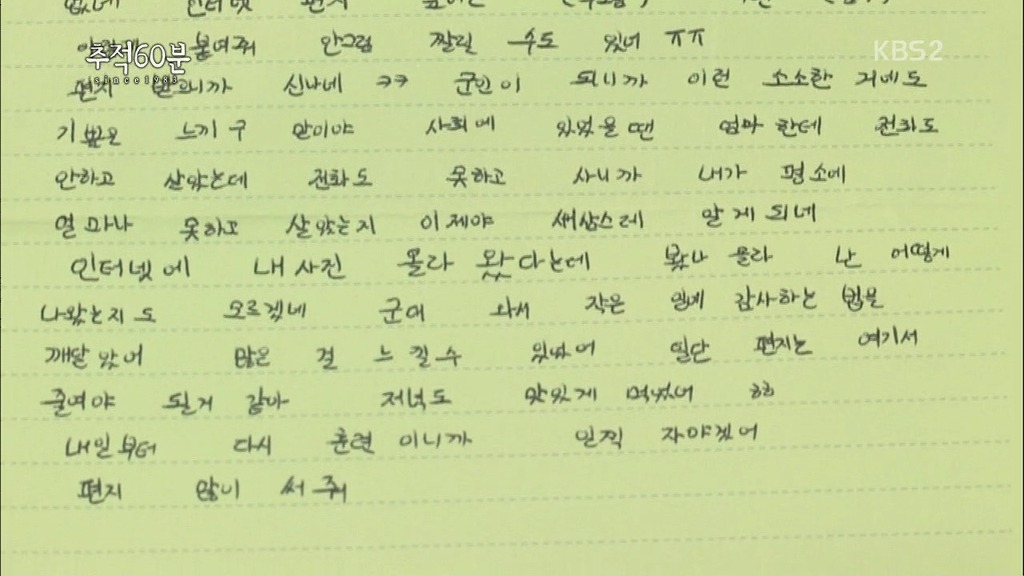 인터넷 편지
추적60분
since1983
KBS2
붙여줘 안그럼 짤릴 수도 있어 ㅠㅠ
편지 받으니까 신나네 ㅋㅋ 군인이 되니까 이런 소소한 거에도
기쁨을 느끼구 말이야 사회에 있었을 땐 엄마한테 전화도
안하고 살았는데 전화도 못하고 사니까 내가 평소에
얼마나 못하고 살았는지 이제야 새삼스레 알게 되네
인터넷에 내 사진 올라 왔다는데 봤나 몰라 난 어떻게
나왔는지도 모르겠네 군대 와서 작은 일에 감사하는 법을
깨달았어 많은 걸 느낄 수 있었어 일단 편지는 여기서
줄여야 될거 같아 저녁도 맛있게 먹었어 ㅎㅎ
내일부터 다시 훈련이니까 일찍 자야겠어
편지 많이 써 줘